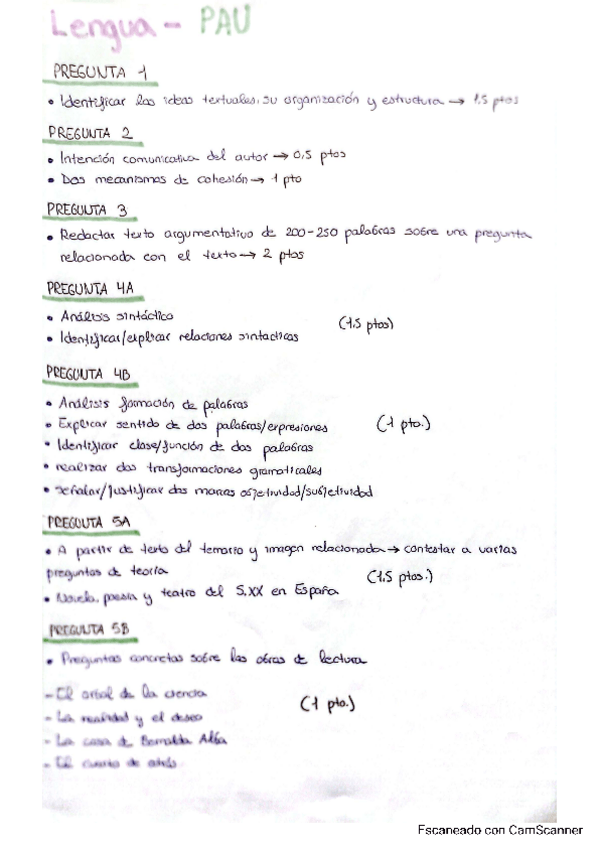 Lengua - PAU
PREGUNTA 1
• Identificar las ideas textuales, su organización y estructura → 1.5 ptos
PREGUNTA 2
• Intención comunicativa del autor → 0,5 ptos
• Dos mecanismos de cohesión → 1 pto
PREGUNTA 3
• Redactar texto argumentativo de 200-250 palabras sobre una pregunta
relacionada con el texto → 2 ptos
PREGUNTA 4A
• Análisis sintáctico
(1.5 ptos)
• Identificar/explicar relaciones sintacticas
PREGUNTA 4B
• Análisis formación de palabras
• Explicar sentido de dos palabras/expresiones
(1 pto.)
• Identificar clase/función de dos palabras
• realizar dos transformaciones gramaticales
• señalar/justificar dos marcas objetividad/subjetividad
PREGUNTA 5A
• A partir de texto del temario y imagen relacionada → contestar a varias
preguntas de teoría
(1.5 ptos.)
• Novela, poesía y teatro del S.XX en España
PREGUNTA 5B
• Preguntas concretas sobre las obras de lectura
- El arbol de la ciencia
(1 pto.)
- La realidad y el deseo
- La casa de Bernalda Alba
- El cuarto de atrás
Escaneado con CamScanner